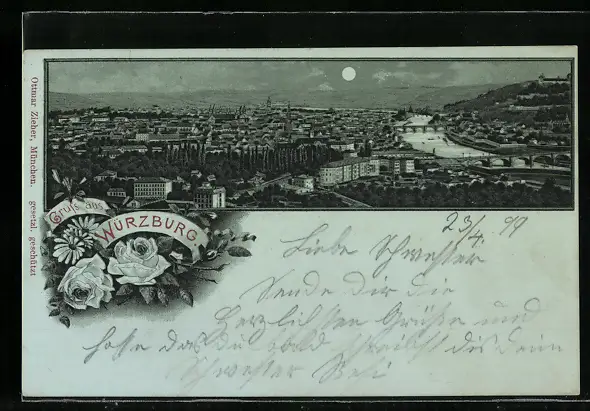 Ottmar Zieher, München. gesetzl. geschützt
Gruß aus
WÜRZBURG
23/4. 99
Liebe Schwester
Sende dir die
Herzlichsten Grüße und
hoffe das du bald schreibst dis dein
Schwester Resi